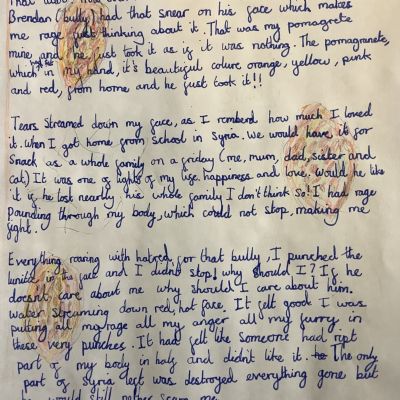 Brendan (bully) had that snear on his face which makes
me rage just thinking about it. That was my pomagrete
mine and he just took it as if it was nothing. The pomagranete,
which in my hand, it's beautiful colur orange, yellow, punk
and red, from home and he just took it!!
Tears streamed down my face, as I remberd how much I loved
it. when I got home from school in Syria. We would have it for
Snack as a whole family on a friday (me, mum, dad, sister and
cat) It was one of lights of my life. happiness and love. Would he like
it if he lost nearly his whole family I don't think so! I had rage
Pounding through my body, which could not stop, making me
fight.
Everything roaring with hatred for that bully, I punched the
in the face and I didn't stop! why should I? If he
doesn't care about me why should I care about him.
water streaming down red, hot face. It felt good I was
putting all my rage all my anger all my furry in
these very punches. It had felt like someone had ript
part of my body in half and didn't like it. The only
part of Syria left was destroyed everything gone but
he would still nether scare me